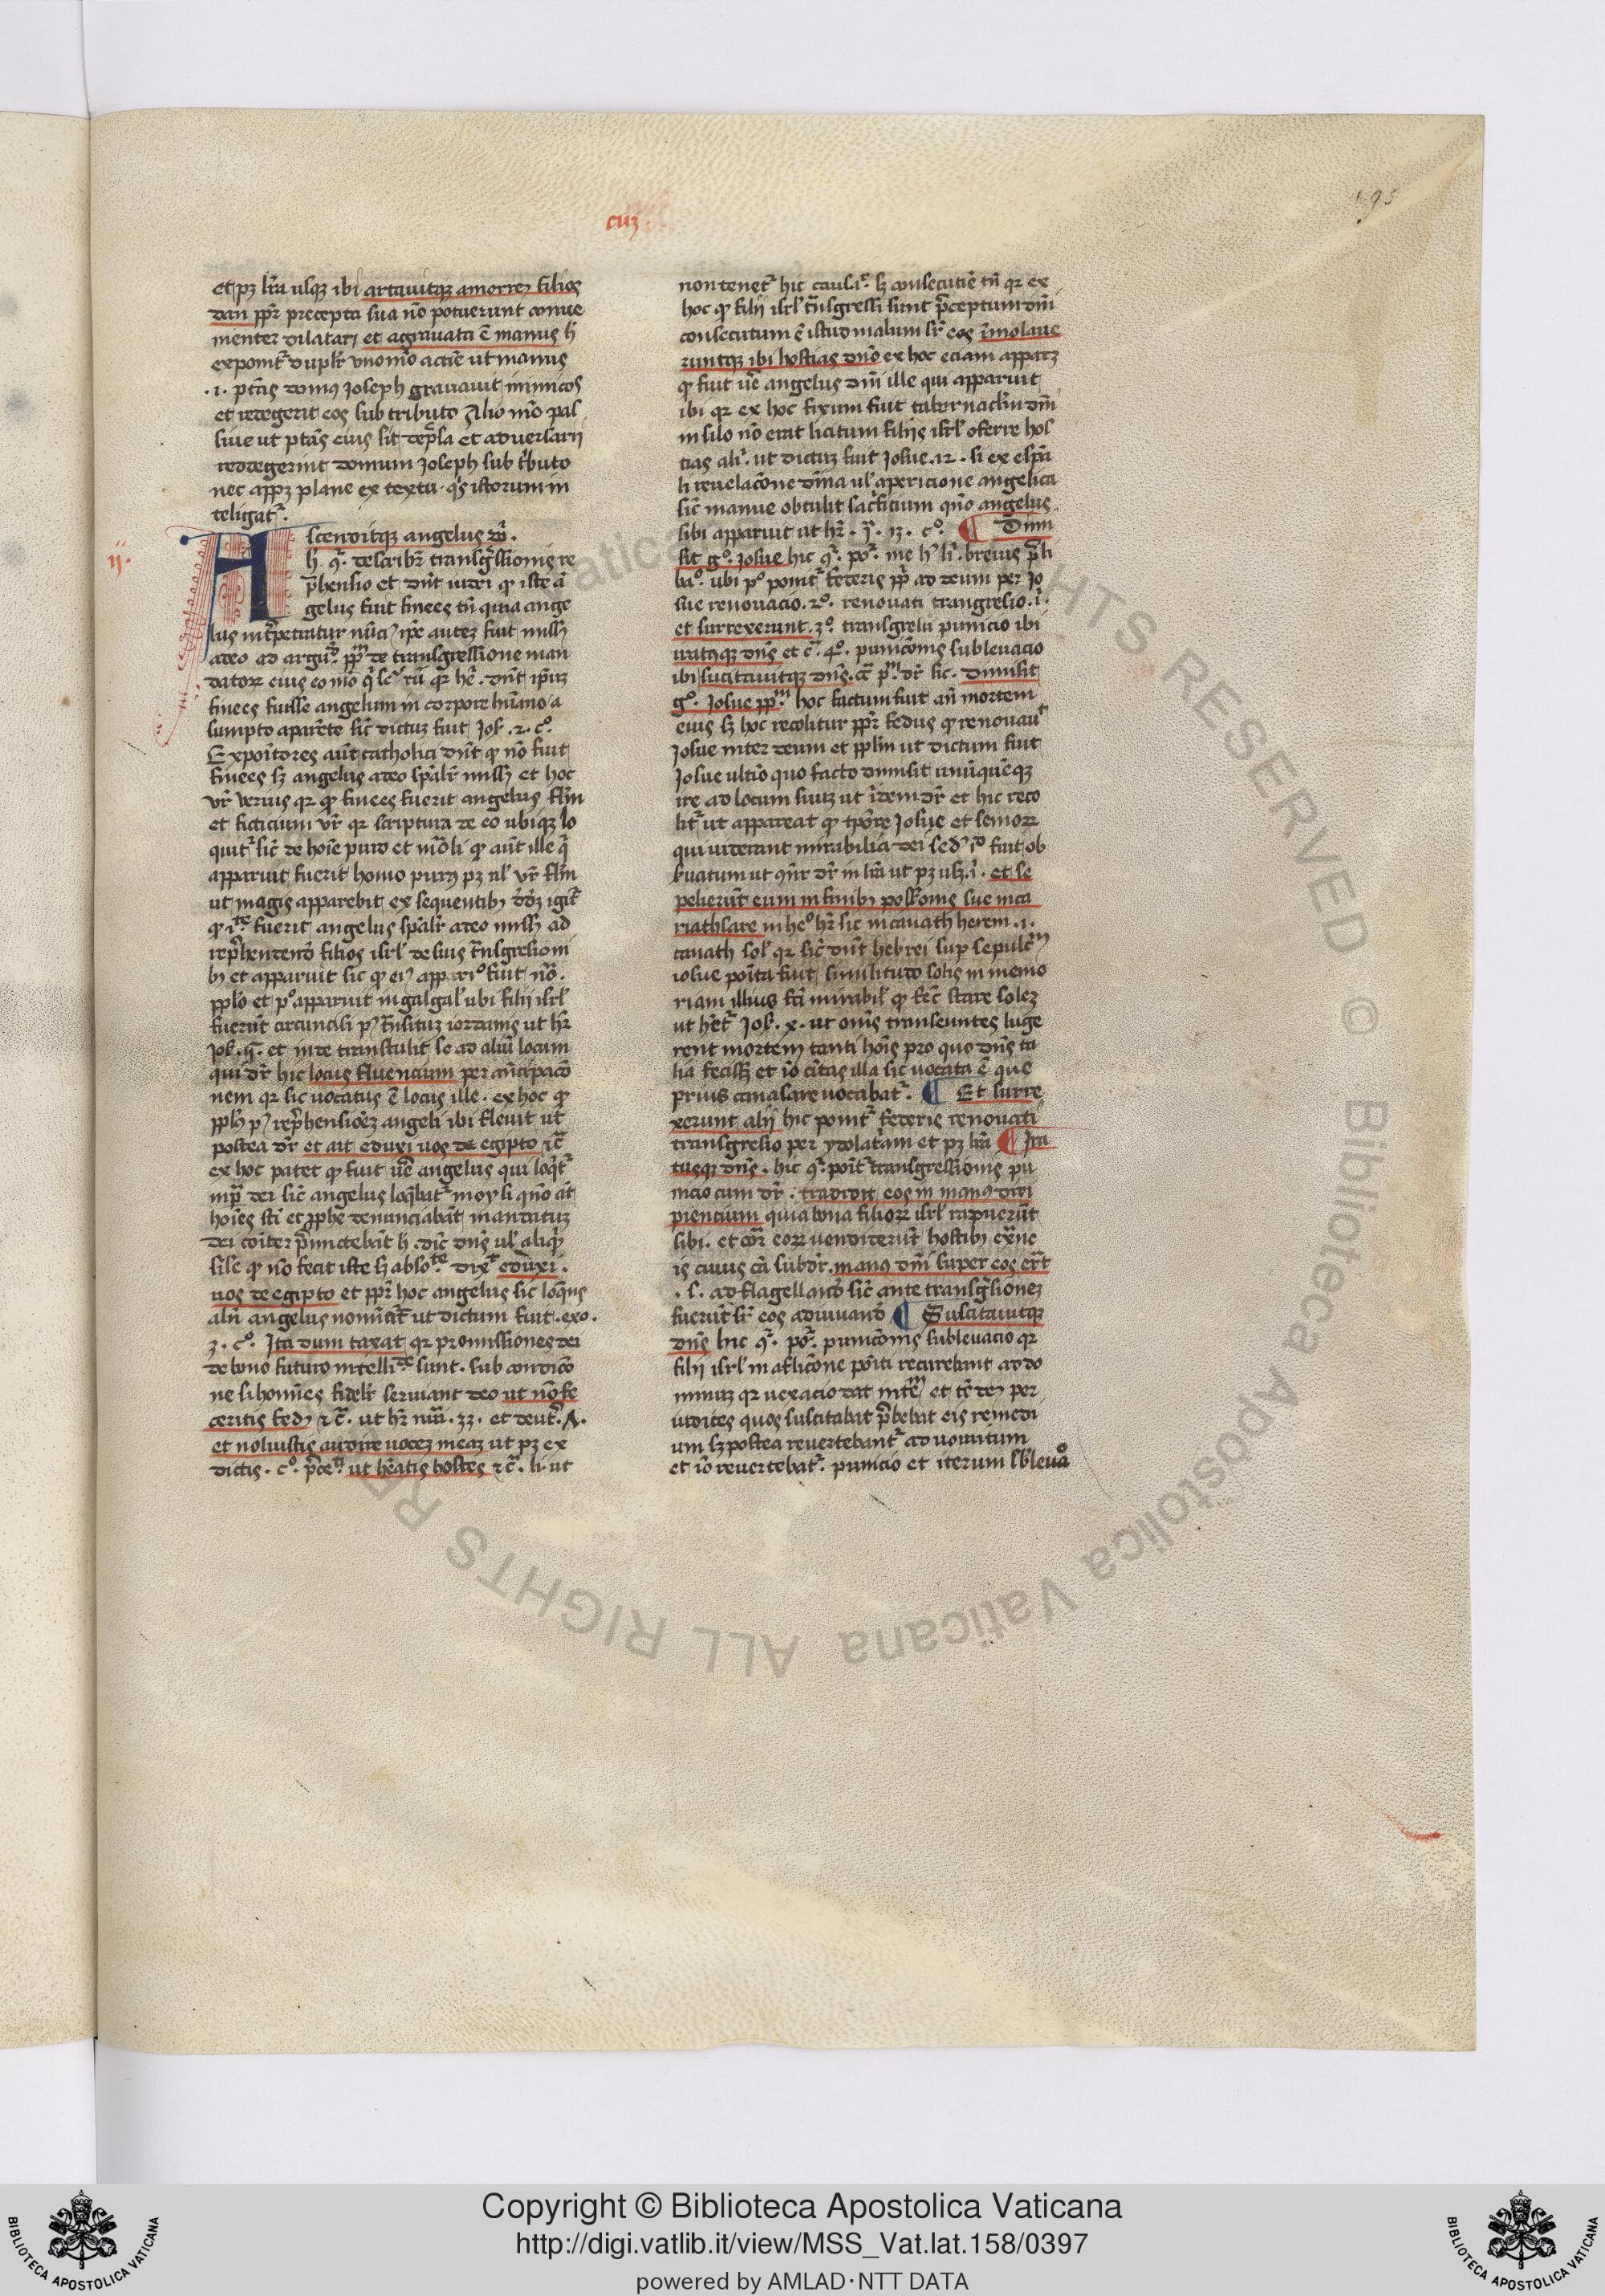 195
cuz
et pz lr̄a usqz ibi artavitqz amorreꝯ filios
dan ppr̄ precepta sua nō potuerunt conue
nienter dilatari et agravata ē manus h̄
exponit᷑ duplr̄ uno mō actīe ut manus
.i. ptās̄ domꝯ Joseph gravavit inimicos
et redegerit eos sub tributo Alio mō pas
sive ut ptās̄ eius sit dep̄ssa et adversarii
redegerint domum Joseph sub t'buto
nec appz plane ex textu
teligat᷑.
ii.
Ascenditqz angelus
h̄ q᷑ describit᷑ transg̃ssionis re
p̄hensio et dn̄t iudei ꝙ iste ā
gelus fuit finees tn̄ quia ange
lus int̄pretatur nūciꝯ ip̄e autez fuit missꝯ
a deo ad arguēꝰ ppl̄m de transgressione man
datoꝝ eius
finees fuisse angelum in corpore hūano a
sumpto aparēte sic̄ dictuz fuit Jos .2. c°
Expoītores aūt catholici dn̄t ꝙ nō fuit
finees sz angelus a deo sp̄alr̄ missꝯ et hoc
vr̄ verius qr ꝙ finees fuerit angelus fl̄m
et ficticium vr̄ qr scriptura de eo ubiqz lo
quit᷑ sic̄ de hoīe puro
apparuit fuerit homo purꝯ pz
ut magis apparebit ex sequentibꝯ
fuerit angelus sp̄alr̄ a deo missꝯ ad
rep̄hendendō filios isrl̄ de suis t̄nsgressioni
bꝯ et apparuit sic ꝙ eiꝯ apparī° fuit nō.
pplō et p° apparuit in galgal' ubi filii isrl̄
fuerūt circuncisi pꝰ t̄nsituz iordanis ut hr̄
Jos. et inde transtulit se ad aliū locum
qui dr̄ hic locus flencium per anticipacō
nem qr sic vocatus ē locus ille . ex hoc ꝙ
pplꝯ pꝰ rep̄hensionēz angeli ibi flevit ut
postea dr̄ et ait eduxi vos de egipto ⁊c̄
ex hoc patet ꝙ fuit ue angelus qui loq̄t᷑
in psā dei sic̄ angelus loq̄bat᷑ moysi qn̄o āt
hoīes sc̄i et ꝓphe denunciabāt mandatuz
dei cōiter p̄mictebāt h̄ dic̄ dn̄s ul' aliq̄d
sil'e ꝙ nō fecit iste sz absoᵗᵉ dixᵗ eduxi.
vos de egipto et ppr̄ hoc angelus sic loq̄ns
alr̄ angelus nomināt᷑ ut dictum fuit .exo.
3. c°. Ita dum taxat qr promissiones dei
de bono futuro intelliᵈᵉ sunt . sub condicō
ne si homīes fidelr̄ serviant deo ut nō fe
ceritis fedꝯ ⁊c̄. ut hr̄ nūi .33. et deut᷑.
et noluistis audire vocez meaz ut pz ex
dictis . c°. p̄ceᵗⁱ. ut hēatis hostes ⁊c̄. li ut
non tenet᷑ hic causaʳ. sz consecutīe tn̄ qr ex
hoc ꝙ filii isrl̄ t̄nsgressi sunt p̄ceptum dn̄i
consecutum ē istud malum sr̄ eos īmolave
runtqz ibi hostias dn̄o ex hoc eciam apparz
ꝙ fuit ue angelus dn̄i ille qui apparuit
ibi qr ex hoc fixum fuit tabernacl̄m dn̄i
in silo nō erat licitum filiis isrl̄ oferre hos
tias aliʳ. ut dictuz fuit Josue .12. si ex esp̄a
li revelacōne diīna ul' apericione angelica
sic̄ manue obtulit sac̄ficium qn̄o angelus
sibi apparuit ut hr̄ . j̄. 13 . c°. ¶ Dimi
sit g°. Josue hic q᷑. po᷑. brevius p̄li
ba°. ubi p° ponit᷑ federis ppl̄i ad deum per Jo
sue renovacio .2°. renovati trangresio .i.
et surrexerunt .3°. transgresii punicio ibi
iratusqz dn̄s et c̄. 4°. punicōnis sublevacio
ibi sucitavitqz dn̄s. dr̄ sic. dimisit
g°. Josue pplᵐ. hoc factum fuit an̄ mortem
eius sz hoc recolitur ppr̄ fedus ꝙ renovaū
Josue inter deum et pplm̄ ut dictum fuit
Josue ultīo quo facto dimisit unūquēqz
ire ad locum suuz ut ibidem dr̄ et hic reco
lit᷑ ut appareat ꝙ tpōre Josue et senioꝝ
qui viderant mirabilia dei fedꝯ id fuit ob
servatum ut 9nr̄ dr̄ in lr̄a ut pz .i. et se
pelierūt eum in finibꝯ possessionis sue in ca
riathsare in he° hr̄ sic in canath herem .i.
canath sol' qr sic̄ dn̄t hebrei sup sepulcᵐ
iosue poīta fuit similitudo solis in memo
riam illius fc̄i mirabil' ꝙ fec̄ stare solez
ut hēt᷑ Jos. x. ut omīs transeuntes luge
rent mortem tanti hoīs pro quo dn̄s ta
lia fecissz et iō cīvitas illa sic vocata ē que
prius canasare vocabat᷑. ¶ Et surre
xerunt alii hic ponit᷑ federis renovati
transgresio per ydolat̄iam et pz lr̄a ¶ Ira
tusqz dn̄s . hic q᷑. poīt᷑ transgressionis pu
nicio cum dr̄ . tradidit eos in manꝯ diri
piencium quia bona filioꝝ isrl̄ rapuerūt
sibi . et cor̄ eoꝝ vendiderūt hostibꝯ ex̄ne
is cuius cā subdr̄ . manꝯ dn̄i super eos er̄t
.s. ad flagellandō sic̄ ante transg̃ssionez
fuerūt sr̄ eos adiuvandō ¶ Suscitavitqz
dn̄s hic q᷑. po᷑. punicōnis sublevacio qr
filii isrl̄ in aflicōne poīti recurebant ad do
minuz qr vexacio dat intᵐ et per
iudices quos suscitabat p̄bebat eis remedi
um sz postea revertebant᷑ ad vomitum
et iō revertebat᷑. punicio et iterum sb'levā°
Copyright © Biblioteca Apostolica Vaticana
http://digi.vatlib.it/view/MSS_Vat.lat.158/0397
powered by AMLAD·NTT DATA
BIBLIOTECA APOSTOLICA VATICANA
BIBLIOTECA APOSTOLICA VATICANA
© Biblioteca Apostolica Vaticana ALL RIGHTS RESERVED